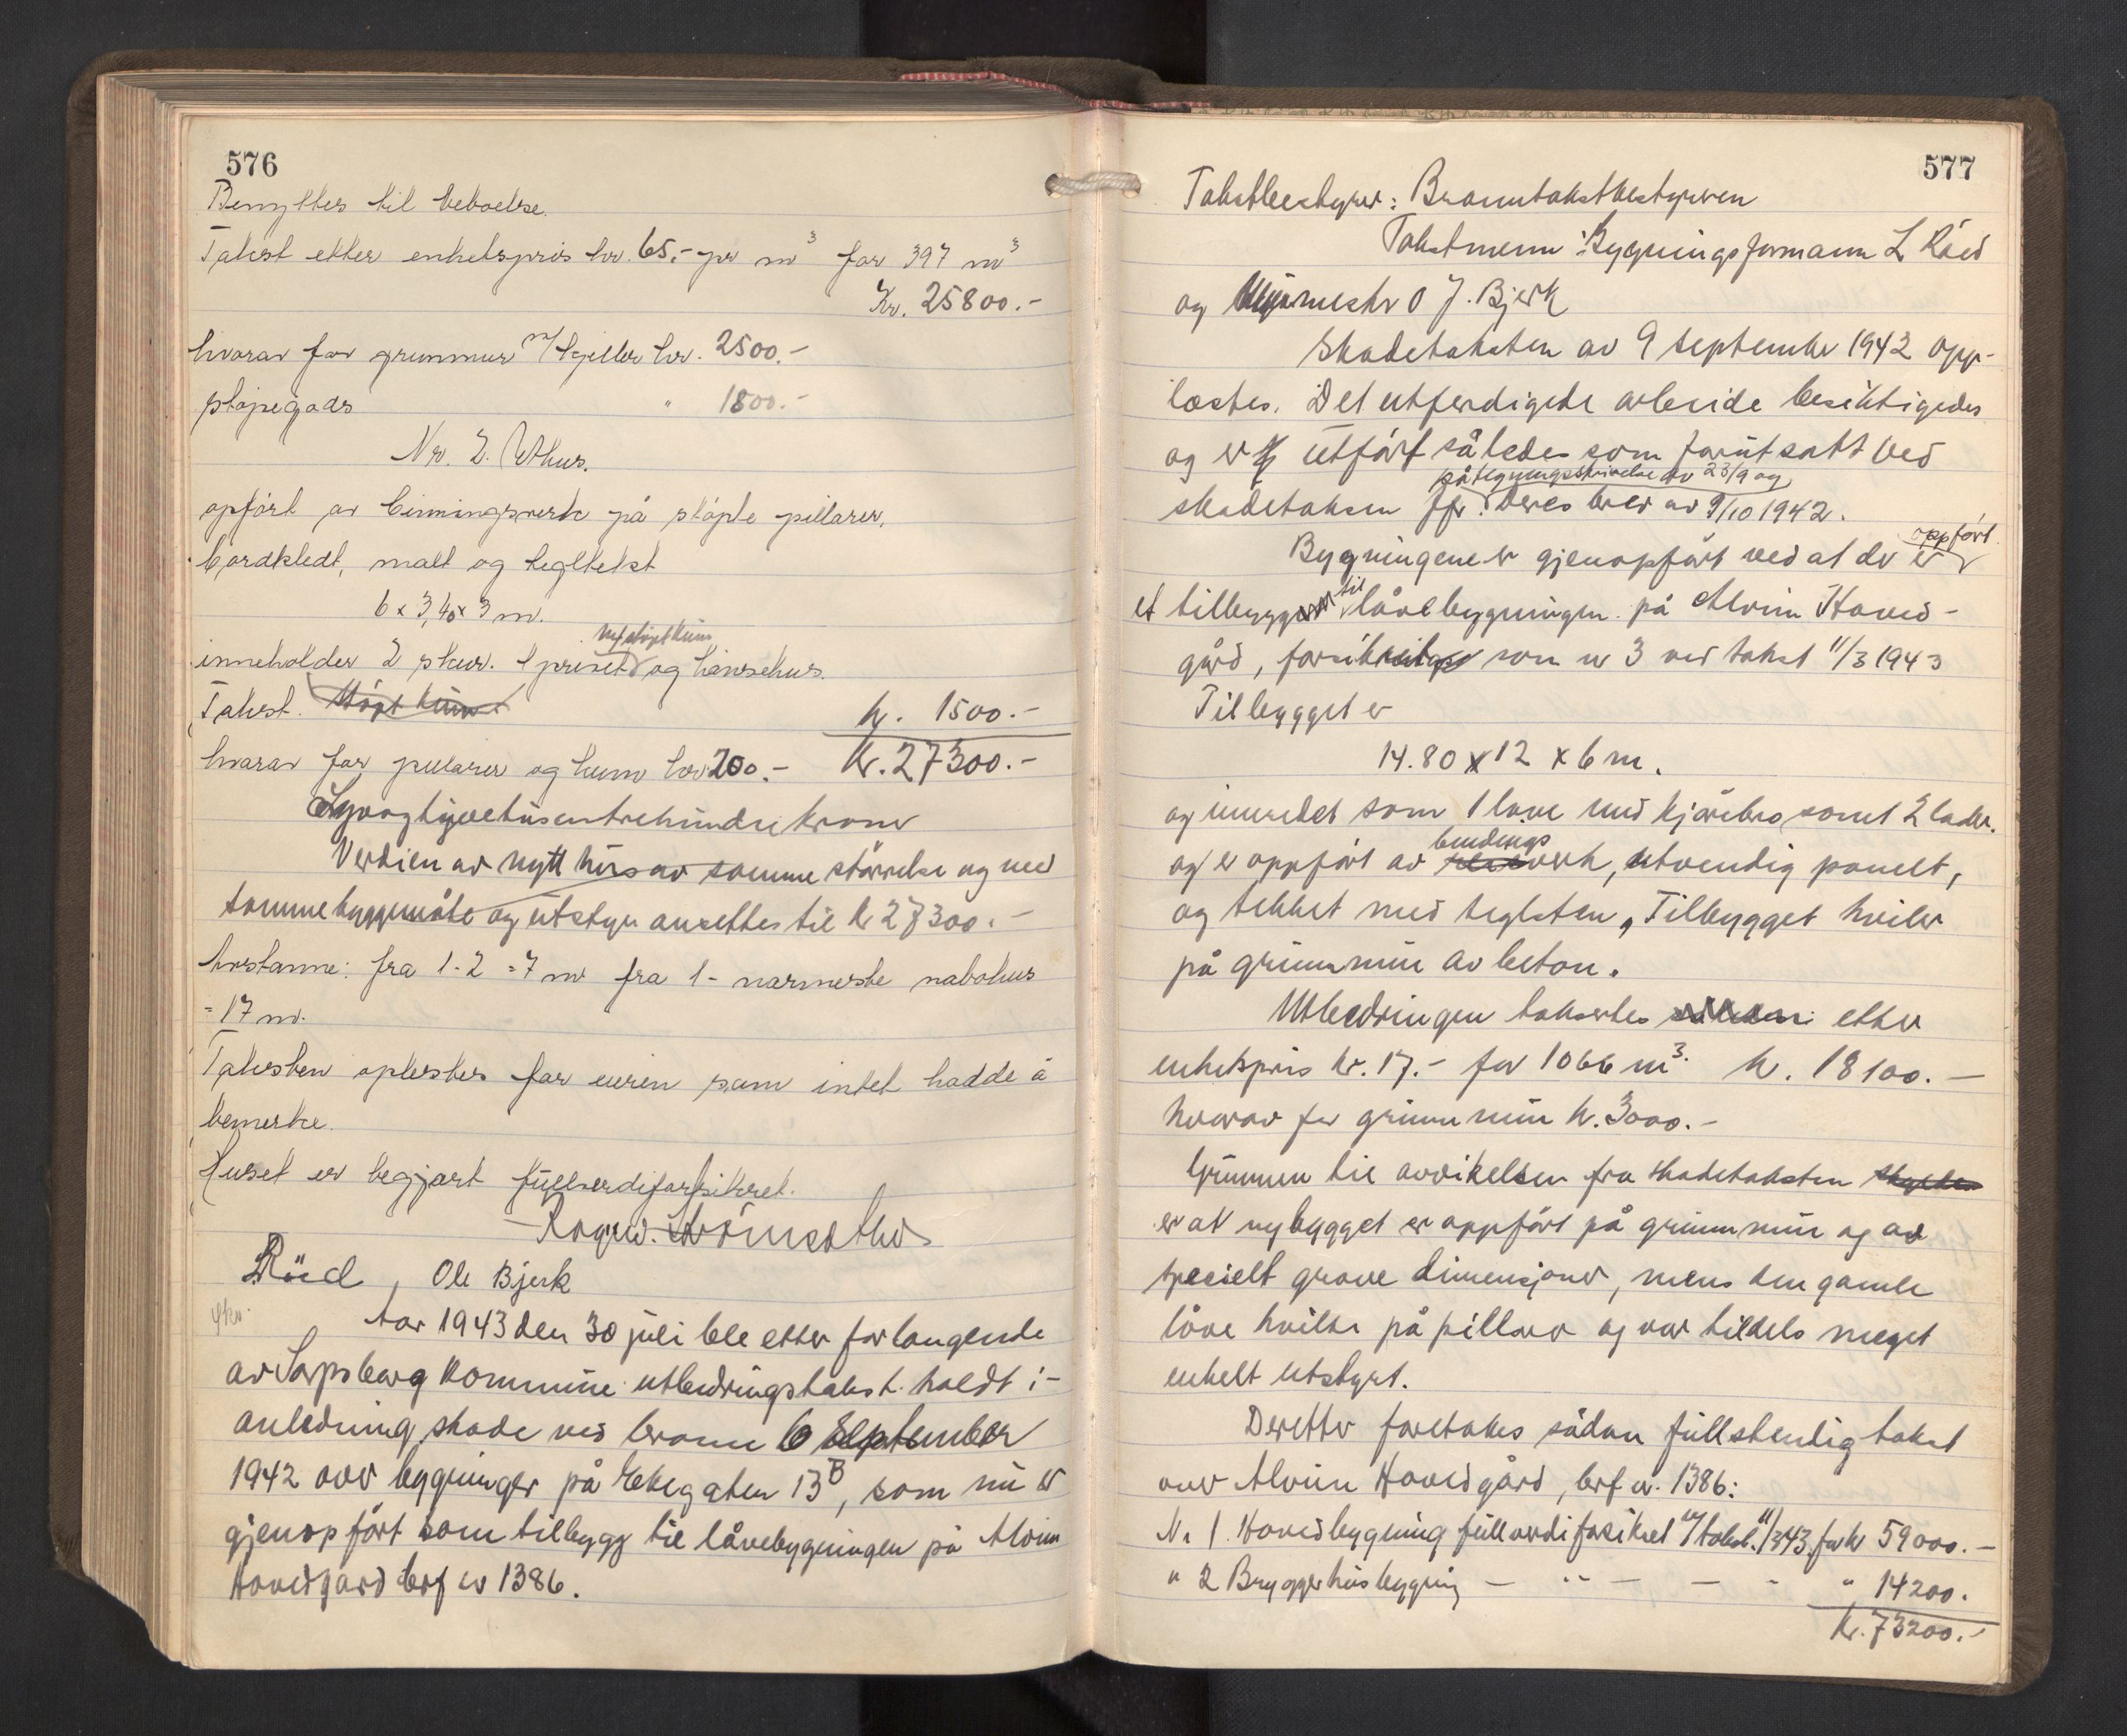 576
Benyttes til beboelse.
Takst etter enhetspris kr. 65.- pr m³ for 397 m³
Kr. 25800.-
hvorav for grunnmur m/kjeller kr. 2500.-
støpegods " 1800.-
Nr. 2. Uthus.
opført av binningsverk på støpte pillarer,
bordkledt, malt og tegltekt
6 x 3,40 x 3 m.
m/støpt kum
inneholder 2 skur. 1 privet og hønsehus.
Takst. Støpt kum kr. 1500.-
hvorav for pillarer og kum kr 200.- Kr. 27300.-
Syvogtyvetusentrehundre kroner
Verdien av nytt hus av samme størrelse og med
samme byggemåte og utstyr ansettes til kr 27300.-
Avstanne: fra 1-2 = 7 m fra 1 - nærmeste nabohus
= 17 m.
Taksten oplestes for eieren som intet hadde å
bemerke.
Huset er begjært fullverdiforsikret.
Ragnv. Strömsæther
L Röed, Ole Bjerk
Aar 1943 den 30 juli ble etter forlangende
av Sarpsborg kommune utbedringstakst holdt i
anledning skade ved brann 6 september
1942 over bygninger på Ekegaten 13 B, som nu er
gjenopført som tilbygg til låvebygningen på Alvim
Hovedgård brf nr 1386.
577
Takstbestyrer: Branntakstbestyreren
Takstmenn: Bygningsformann L Röed
og murmester O J. Bjerk
Skadetaksten av 9 september 1942 opp-
læstes. Det utferdigede arbeide besiktigedes
og er utført således som forutsatt ved
påtegningsskrivelse av 23/9 og
skadetaksen jfr. deres brev av 9/10 1942.
oppført
Bygningene er gjenopført ved at der er
et tilbygg til låvebygningen på Alvim Hoved-
gård, forsikret som nr 3 ved takst 11/3 1943
Tilbygget er
14.80 x 12 x 6 m.
og innredet som 1 låve med kjørebro samt 2 lader.
bindings
og er oppført av verk, utvendig panelt,
og tekket med teglsten, Tilbygget hviler
på grunnmur av beton.
Utbedringen takseres etter
enhetspris kr. 17.- for 1066 m³. kr. 18100.-
hvorav for grunnmur kr. 3000.-
Grunnen til avvikelsen fra skadetaksten skyldes
er at nybygget er oppført på grunnmur og av
specielt grove dimensjoner, mens den gamle
låve hvilte på pillarer og var tildels meget
enkelt utstyrt.
Deretter foretakes sådan fullstendig takst
over Alvim Hovedgård, brf nr. 1386:
Nr 1. Hovedbygning fullverdiforsikret v/takst. 11/3 43. for kr 59000.-
" 2 Bryggerhusbygning - " - - - " 14200.
Kr. 73200.-